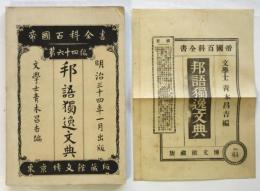 帝國百科全書
第六十四編
明治三十四年一月出版
邦語獨逸文典
文學士青木昌吉編
東京博文館藏版
帝國百科全書
文學士 青木昌吉編
邦語獨逸文典
博文館藏版